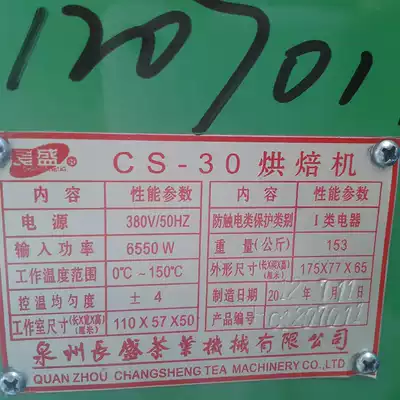 120701
盛 CS-30 烘焙机
内容 性能参数 内容 性能参数
电源 380V/50HZ 防触电类保护类别 I类电器
输入功率 6550W 重量(公斤) 153
工作温度范围 0℃~150℃ 外形尺寸(长X宽X高)(厘米) 175X77X65
控温均匀度 ±4 制造日期
工作室尺寸(长X宽X高)(厘米) 110X57X50 产品编号
泉州長盛茶葉機械有限公司
QUAN ZHOU CHANGSHENG TEA MACHINERY CO.,LTD